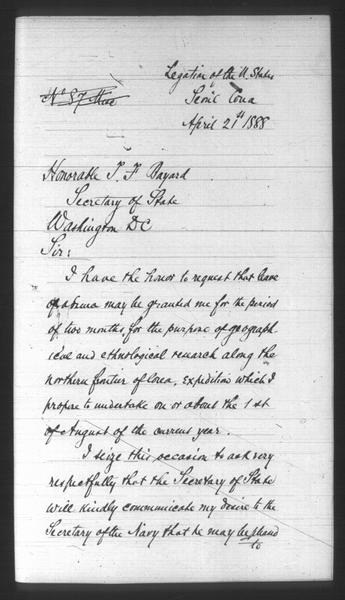 Legation of the U. States
Seoul Corea
No 87 Misc
April 21st 1888
Honorable T. F. Bayard
Secretary of State
Washington DC
Sir:
I have the honor to request that leave
of absence may be granted me for the period
of two months, for the purpose of geograph-
ical and ethnological research along the
northern frontier of Corea, expedition which I
propose to undertake on or about the 1st
of August of the current year.
I seize this occasion to ask very
respectfully that the Secretary of State
will kindly communicate my desire to the
Secretary of the Navy that he may be pleased
to